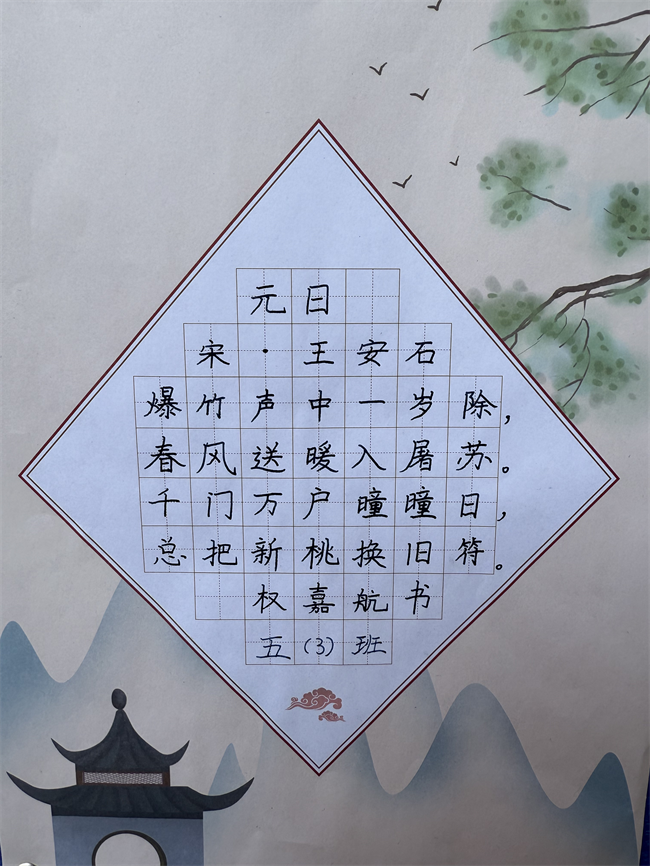 元日
宋·王安石
爆竹声中一岁除，
春风送暖入屠苏。
千门万户曈曈日，
总把新桃换旧符。
权嘉航书
五(3)班